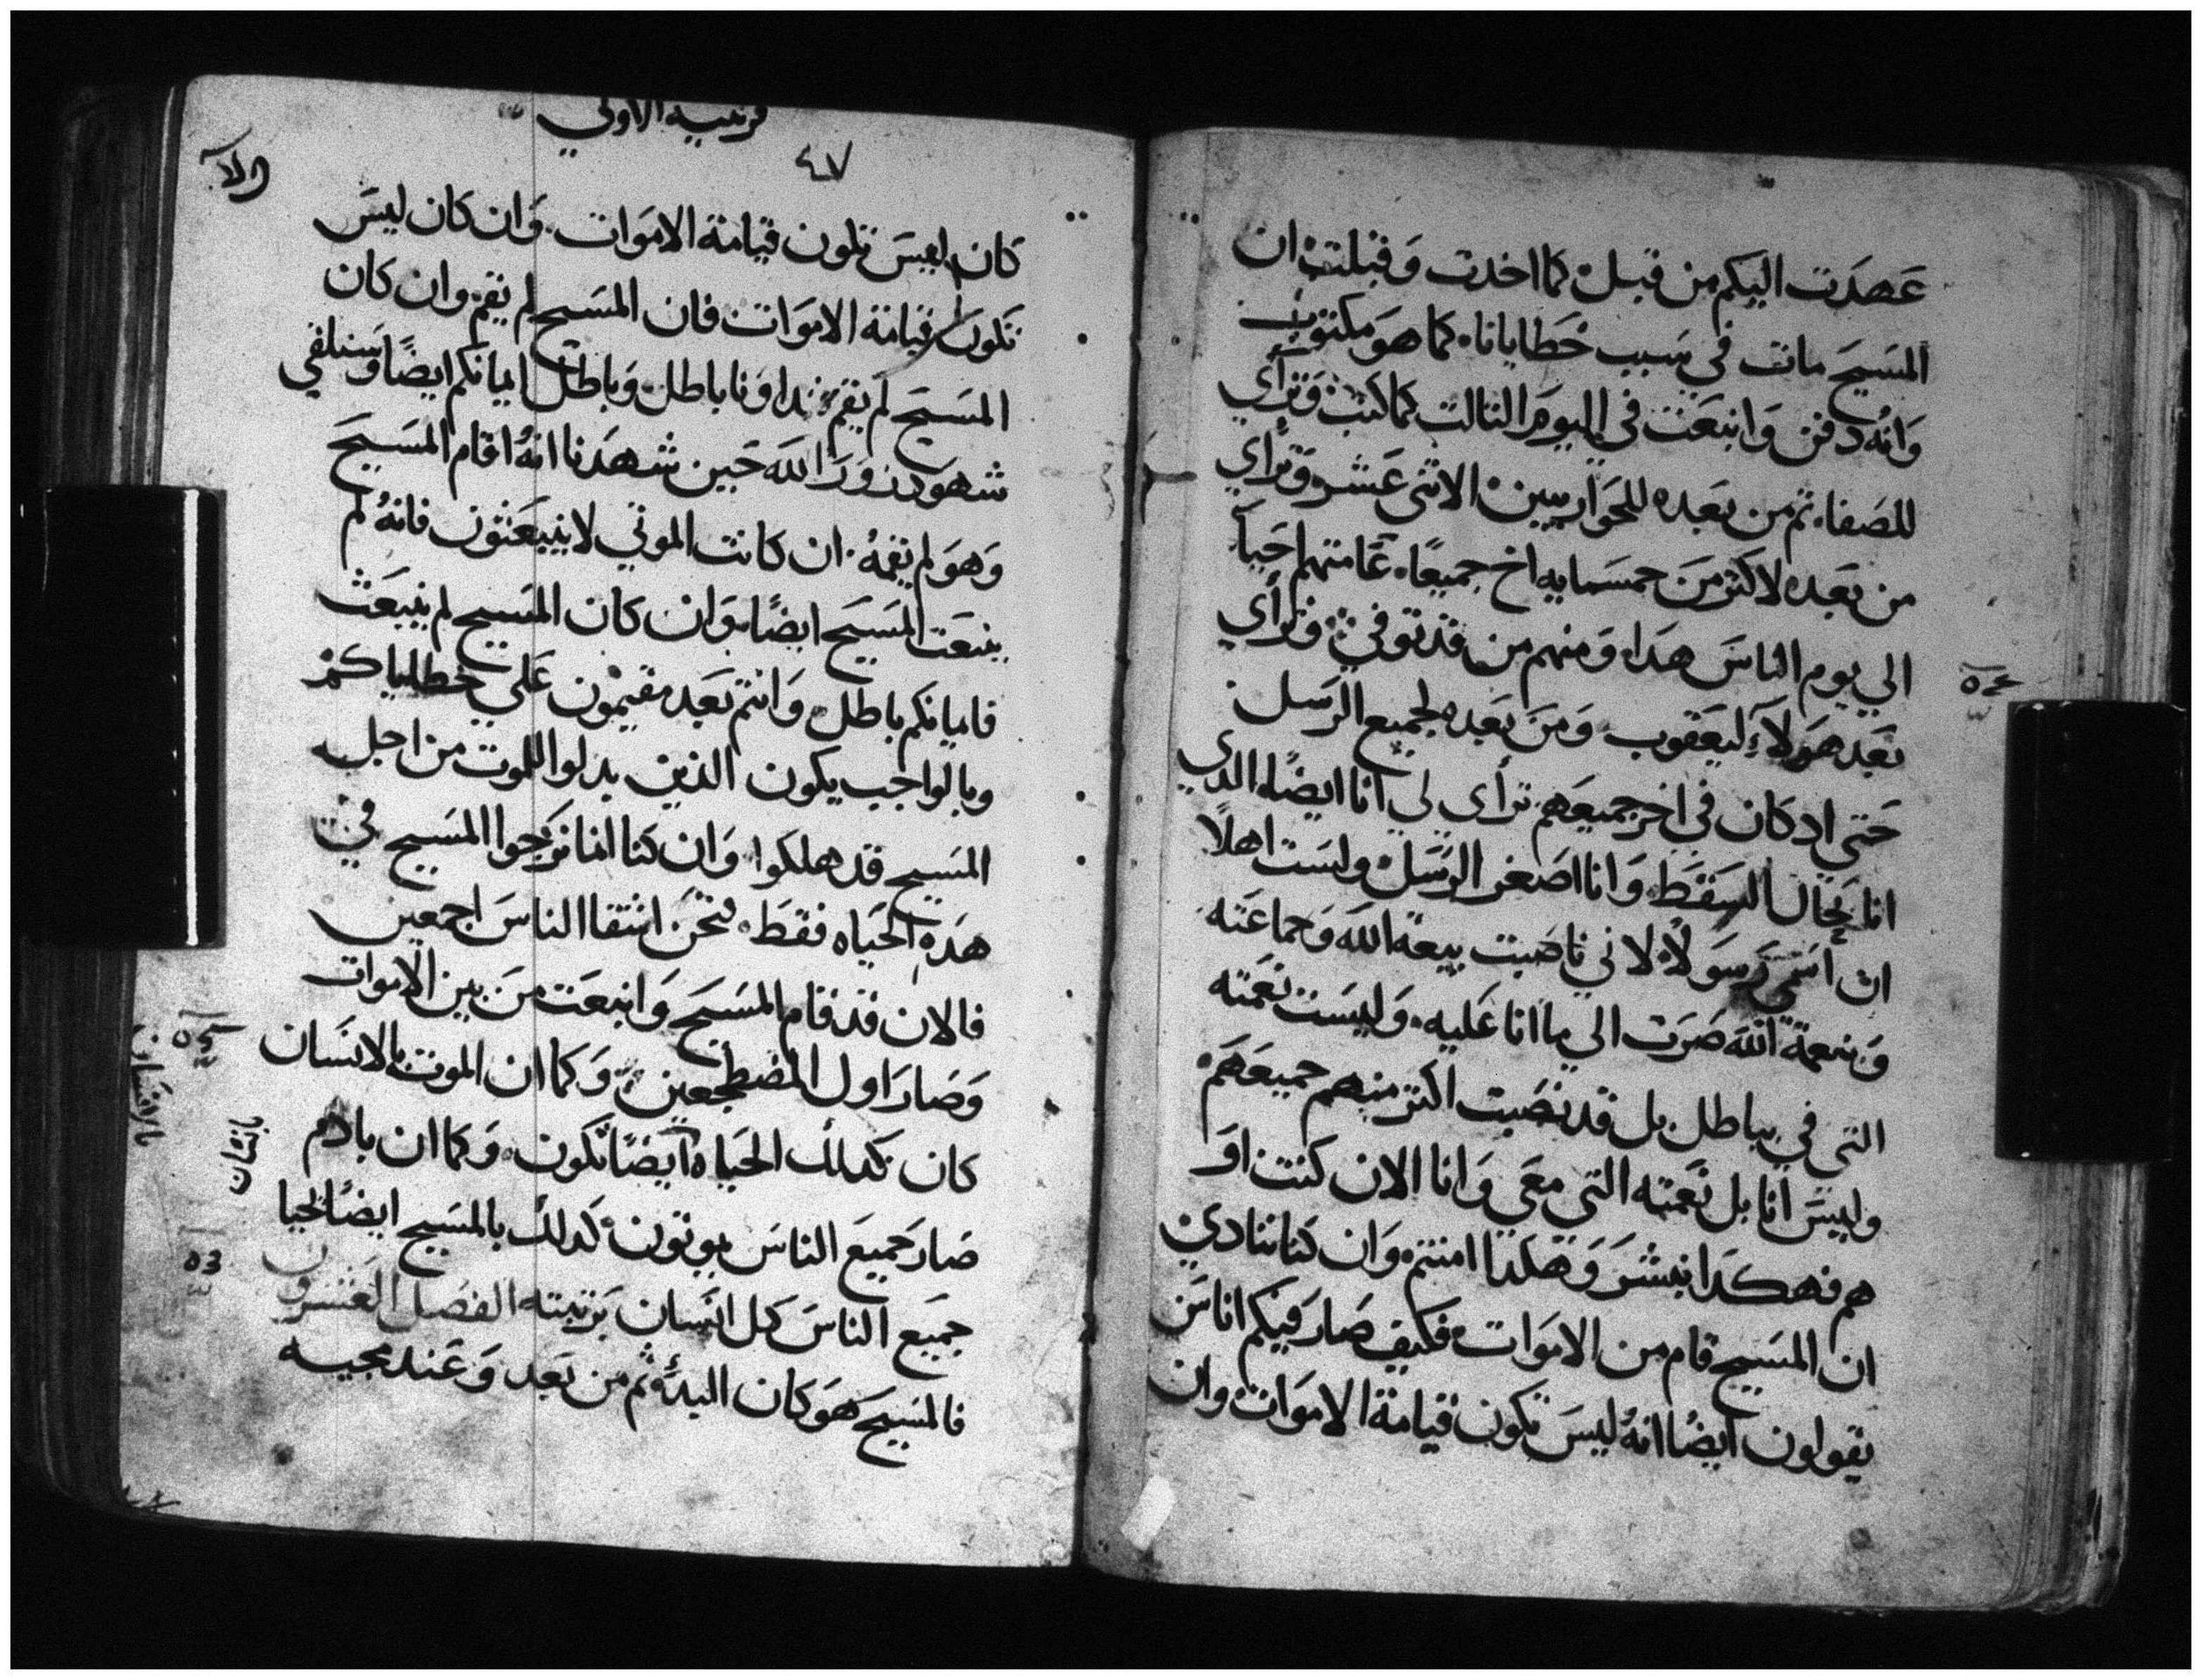 عهدت اليكم من قبل كما اخدت وقبلت ان
المسيح مات في سبب خطايانا كما هو مكتوب
وانه دفن وانبعت في اليوم التالت كما كتب وترأي
للصفا ثم من بعده للحواريين الاثني عشر وترأي
من بعده لاكتر من خمسمايه اخ جميعا عامتهم احيآ
الي يوم الناس هدا ومنهم من قد توفي وترأي
بعد هولآء ليعقوب ومن بعده لجميع الرسل
حتي اد كان في اخر جميعهم ترأى لي انا ايضا الدي
انا بحال السقط وانا اصغر الرسل ولست اهلا
ان اسمي رسولا لاني ناصبت بيعة الله وجماعته
وبنعمة الله صرت الي ما انا عليه وليست نعمته
التي في بباطل بل قد نصبت اكتر منهم جميعهم
وليس انا بل نعمته التي معي وانا الان كنت او
هم فهكدا نبشر وهكدا امنتم وان كنا ننادي
ان المسيح قام من الاموات فكيف صار فيكم اناس
يقولون ايضا انه ليس تكون قيامة الاموات وان
قرنتيه الاولي
٤٧
كان ليس تكون قيامة الاموات وان كان ليس
تكون قيامة الاموات فان المسيح لم يقم وان كان
المسيح لم يقم فنداونا باطل وباطل ايمانكم ايضا وسنلفي
شهود زور الله حين شهدنا انه اقام المسيح
وهو لم يقمه ان كانت الموتي لا ينبعثون فانه لم
ينبعت المسيح ايضا وان كان المسيح لم ينبعث
فايمانكم باطل وانتم بعد مقيمون علي خطاياكم
وبالواجب يكون الذين بدلوا للموت من اجل
المسيح قد هلكوا وان كنا انما نرجوا المسيح في
هده الحياه فقط فنحن اشقا الناس اجمعين
فالان قد قام المسيح وانبعت من بين الاموات
وصار اول المضطجعين وكما ان الموت بالانسان
كان كدلك الحياه ايضا تكون وكما ان بادم
صار جميع الناس يموتون كدلك بالمسيح ايضا يحيا
جميع الناس كل انسان برتبته الفصل العشرون
فالمسيح هو كان البدء ثم من بعد وعند مجيه
بانسان